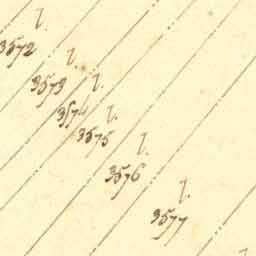 l.
3572
l.
3573
l.
3574
l.
3575
l.
3576
l.
3577
l.